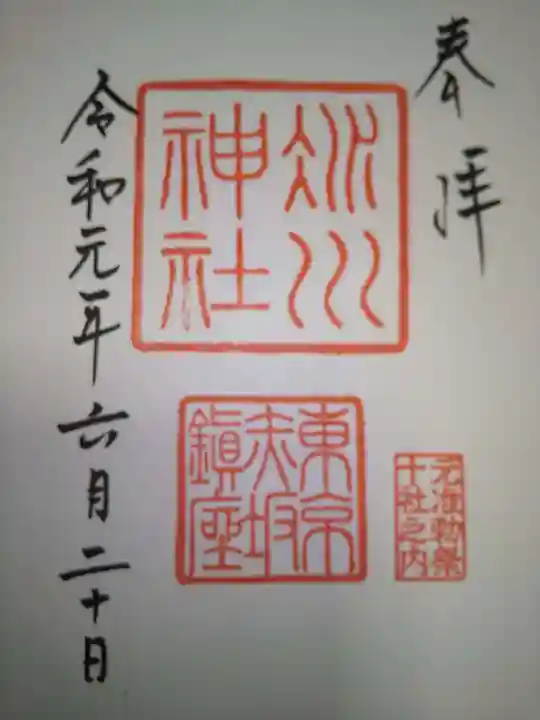 奉拝
氷川
神社
東京
赤坂
鎮座
元准勅祭
十社之内
令和元年六月二十日